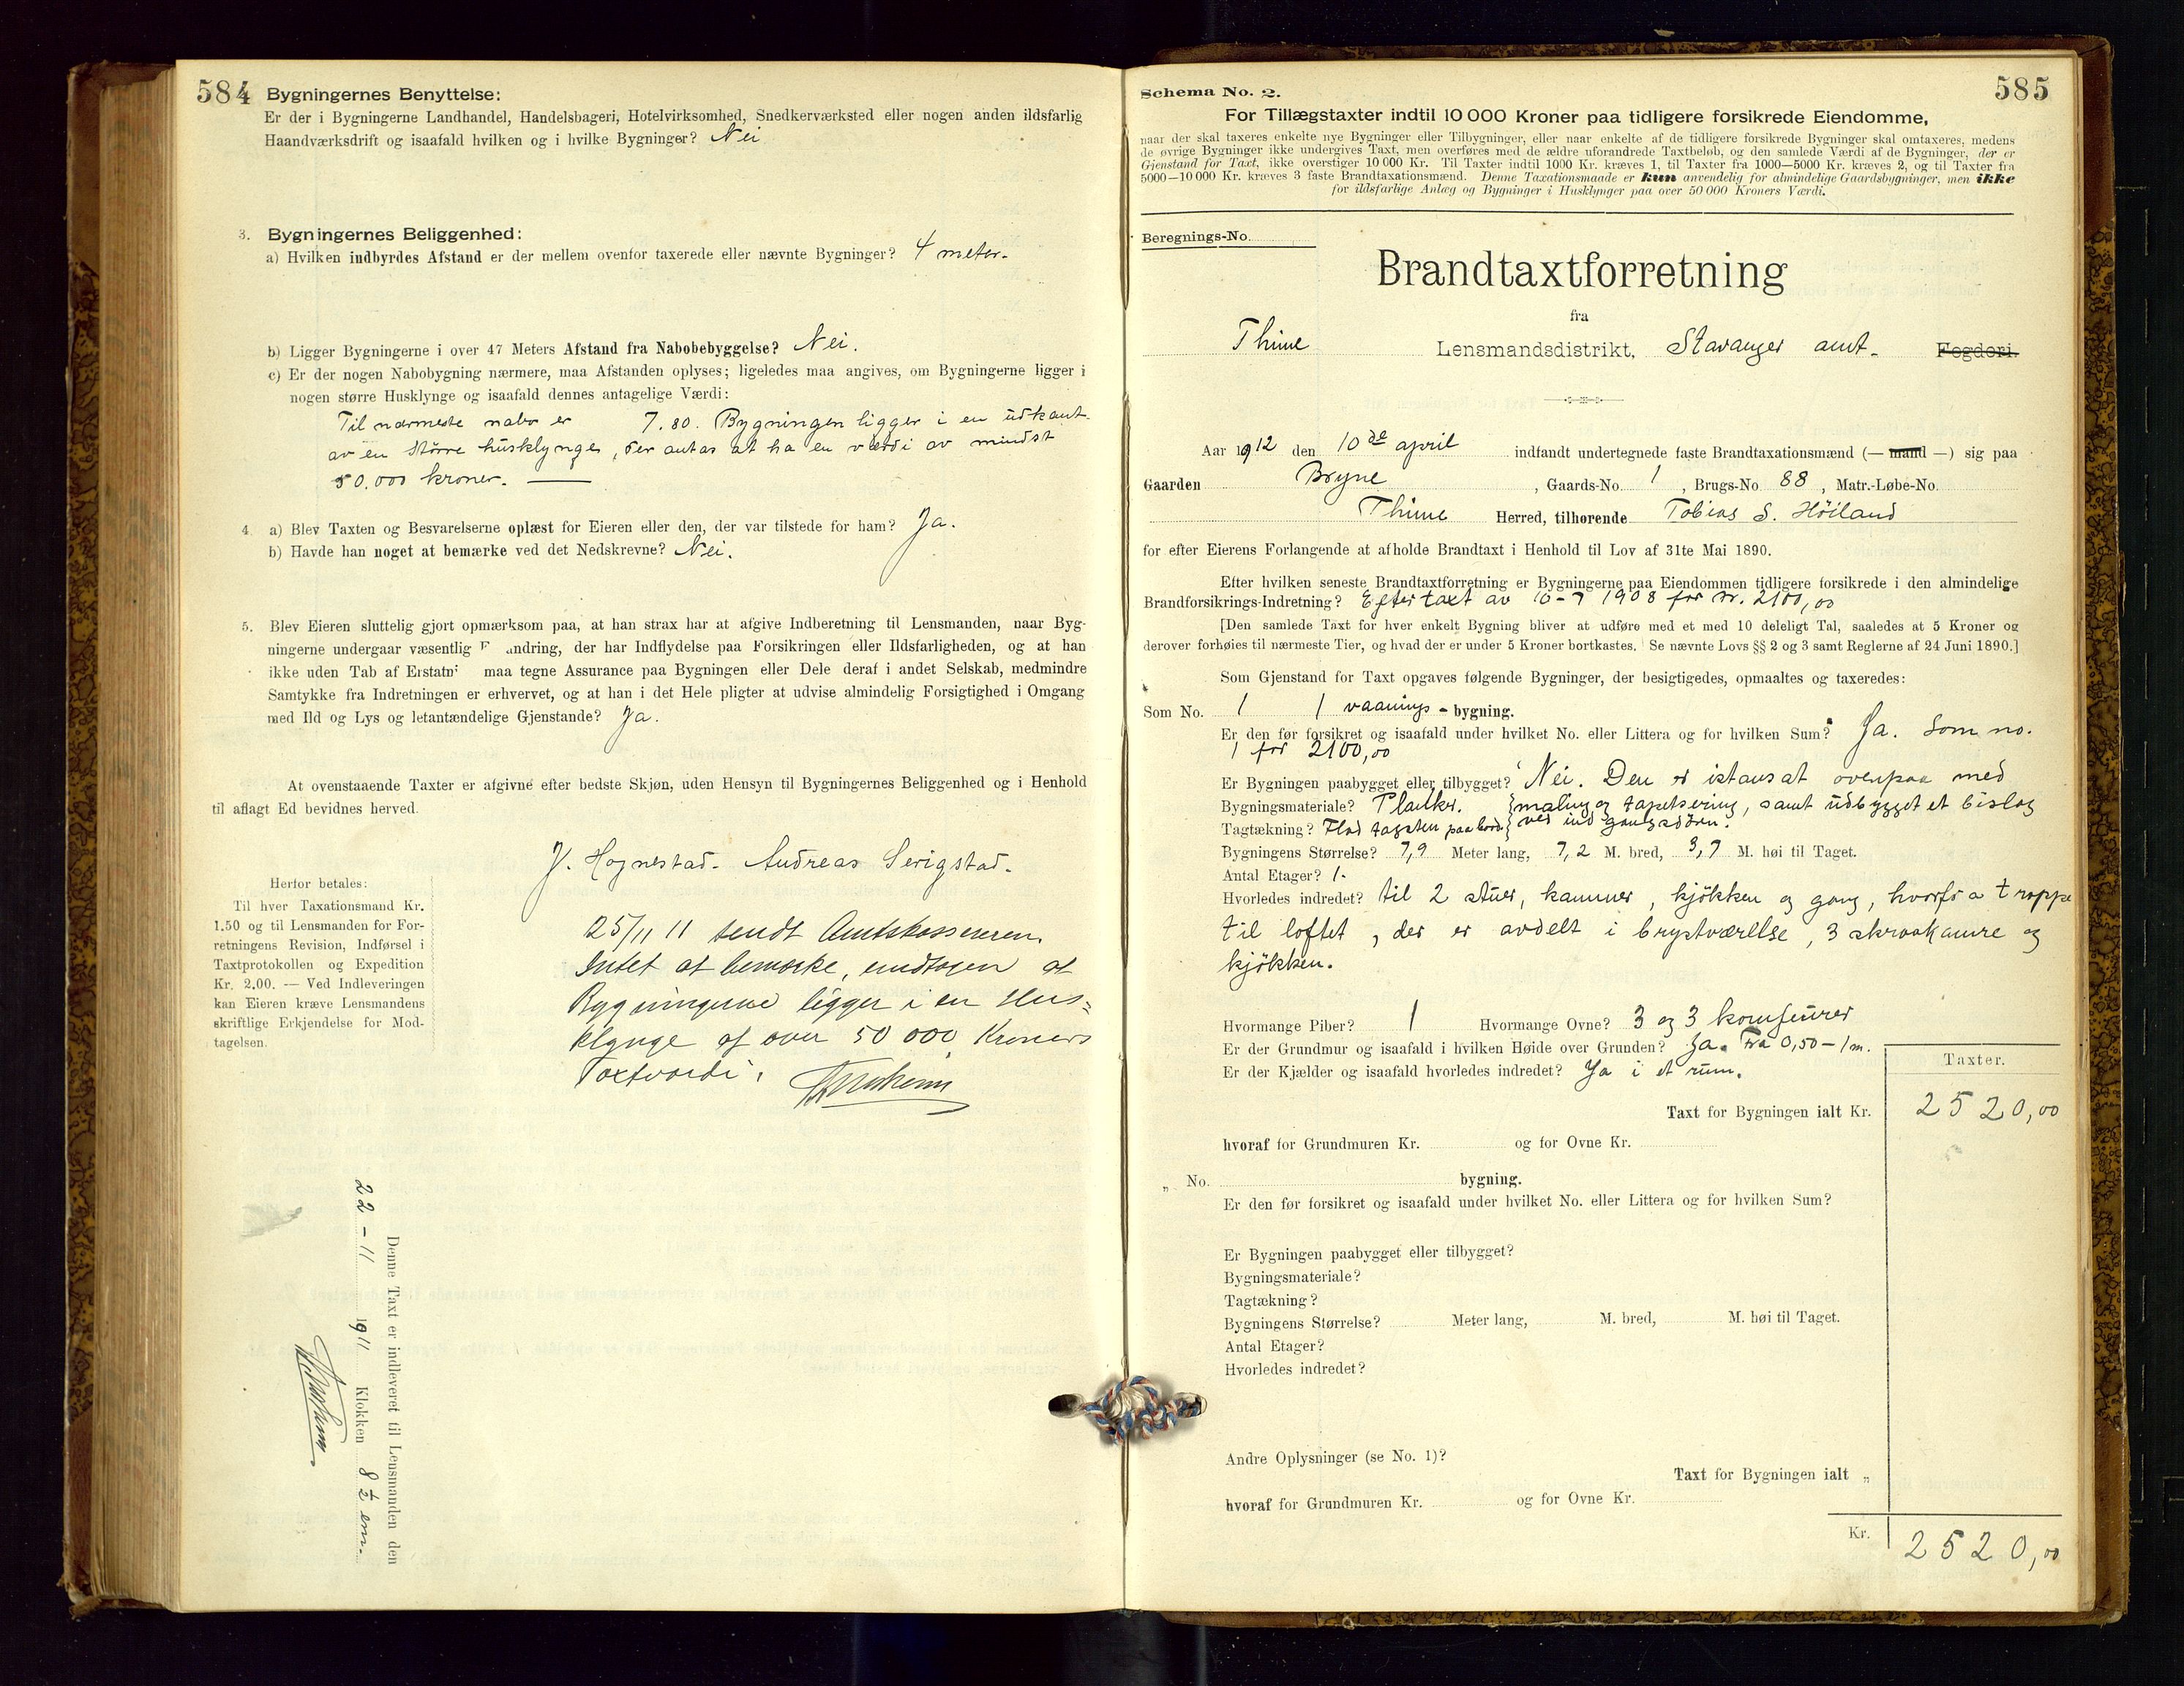 584
Bygningernes Benyttelse:
Er der i Bygningerne Landhandel, Handelsbageri, Hotelvirksomhed, Snedkerværksted eller nogen anden ildsfarlig
Haandværksdrift og isaafald hvilken og i hvilke Bygninger? Nei
3. Bygningernes Beliggenhed:
a) Hvilken indbyrdes Afstand er der mellem ovenfor taxerede eller nævnte Bygninger? 4 meter.
b) Ligger Bygningerne i over 47 Meters Afstand fra Nabobebyggelse? Nei.
c) Er der nogen Nabobygning nærmere, maa Afstanden oplyses; ligeledes maa angives, om Bygningerne ligger i
nogen større Husklynge og isaafald dennes antagelige Værdi:
Til nærmeste nabo er 7.80. Bygningen ligger i en udkant
av en større husklynge, der antas at ha en værdi av mindst
50.000 kroner.
4. a) Blev Taxten og Besvarelserne oplæst for Eieren eller den, der var tilstede for ham? Ja.
b) Havde han noget at bemærke ved det Nedskrevne? Nei.
5. Blev Eieren sluttelig gjort opmærksom paa, at han strax har at afgive Indberetning til Lensmanden, naar Byg-
ningerne undergaar væsentlig F andring, der har Indflydelse paa Forsikringen eller Ildsfarligheden, og at han
ikke uden Tab af Erstatn maa tegne Assurance paa Bygningen eller Dele deraf i andet Selskab, medmindre
Samtykke fra Indretningen er erhvervet, og at han i det Hele pligter at udvise almindelig Forsigtighed i Omgang
med Ild og Lys og letantændelige Gjenstande? Ja.
At ovenstaaende Taxter er afgivne efter bedste Skjøn, uden Hensyn til Bygningernes Beliggenhed og i Henhold
til aflagt Ed bevidnes herved.
J. Hognestad. Andreas Serigstad.
Herfor betales:
Til hver Taxationsmand Kr.
1.50 og til Lensmanden for For-
retningens Revision, Indførsel i
Taxtprotokollen og Expedition
Kr. 2.00. — Ved Indleveringen
kan Eieren kræve Lensmandens
skriftlige Erkjendelse for Mod-
tagelsen.
25/11 11 sendt Amtskassereren.
Intet at bemærke, undtagen at
Bygningerne ligger i en Hus-
klynge af over 50 000 Kroners
Taxtværdi.
Denne Taxt er indleveret til Lensmanden den
22-11 1911 Klokken 8 ½ em.
585
Schema No. 2.
For Tillægstaxter indtil 10 000 Kroner paa tidligere forsikrede Eiendomme,
naar der skal taxeres enkelte nye Bygninger eller Tilbygninger, eller naar enkelte af de tidligere forsikrede Bygninger skal omtaxeres, medens
de øvrige Bygninger ikke undergives Taxt, men overføres med de ældre uforandrede Taxtbeløb, og den samlede Værdi af de Bygninger, der er
Gjenstand for Taxt, ikke overstiger 10 000 Kr. Til Taxter indtil 1000 Kr. kræves 1, til Taxter fra 1000—5000 Kr. kræves 2, og til Taxter fra
5000—10 000 Kr. kræves 3 faste Brandtaxationsmænd. Denne Taxationsmaade er kun anvendelig for almindelige Gaardsbygninger, men ikke
for ildsfarlige Anlæg og Bygninger i Husklynger paa over 50 000 Kroners Værdi.
Beregnings-No.
Brandtaxtforretning
fra
Thime Lensmandsdistrikt, Stavanger amt. Fogderi.
Aar 1912 den 10de april indfandt undertegnede faste Brandtaxationsmænd (— mand —) sig paa
Gaarden Bryne, Gaards-No. 1, Brugs-No. 88, Matr.-Løbe-No.
Thime Herred, tilhørende Tobias S. Höiland
for efter Eierens Forlangende at afholde Brandtaxt i Henhold til Lov af 31te Mai 1890.
Efter hvilken seneste Brandtaxtforretning er Bygningerne paa Eiendommen tidligere forsikrede i den almindelige
Brandforsikrings-Indretning? Efter taxt av 10-7 1908 for kr. 2100,00
[Den samlede Taxt for hver enkelt Bygning bliver at udføre med et med 10 deleligt Tal, saaledes at 5 Kroner og
derover forhøies til nærmeste Tier, og hvad der er under 5 Kroner bortkastes. Se nævnte Lovs §§ 2 og 3 samt Reglerne af 24 Juni 1890.]
Som Gjenstand for Taxt opgaves følgende Bygninger, der besigtigedes, opmaaltes og taxeredes:
Som No. 1 1 vaanings-bygning.
Er den før forsikret og isaafald under hvilket No. eller Littera og for hvilken Sum? Ja. Som no.
1 for 2100,00
Er Bygningen paabygget eller tilbygget? Nei. Den er istansat ovenpaa med
Bygningsmateriale? Planker. maling og tapetsering, samt udbygget et bislag
Tagtækning? Flad tagsten paa bord ved indgangsdören.
Bygningens Størrelse? 7,9 Meter lang, 7,2 M. bred, 3,7 M. høi til Taget.
Antal Etager? 1.
Hvorledes indredet? til 2 stuer, kammer, kjökken og gang, hvorfra trappe
til loftet, der er avdelt i brystværelse, 3 skraakamre og
kjökken.
Hvormange Piber? 1 Hvormange Ovne? 3 og 3 komfeurer
Er der Grundmur og isaafald i hvilken Høide over Grunden? Ja. Fra 0,50 - 1 m.
Er der Kjælder og isaafald hvorledes indredet? Ja i et rum.
Taxter.
Taxt for Bygningen ialt Kr. 2520,00
hvoraf for Grundmuren Kr. og for Ovne Kr.
„ No. bygning.
Er den før forsikret og isaafald under hvilket No. eller Littera og for hvilken Sum?
Er Bygningen paabygget eller tilbygget?
Bygningsmateriale?
Tagtækning?
Bygningens Størrelse? Meter lang, M. bred, M. høi til Taget.
Antal Etager?
Hvorledes indredet?
Andre Oplysninger (se No. 1)?
Taxt for Bygningen ialt „
hvoraf for Grundmuren Kr. og for Ovne Kr.
Kr. 2520,00